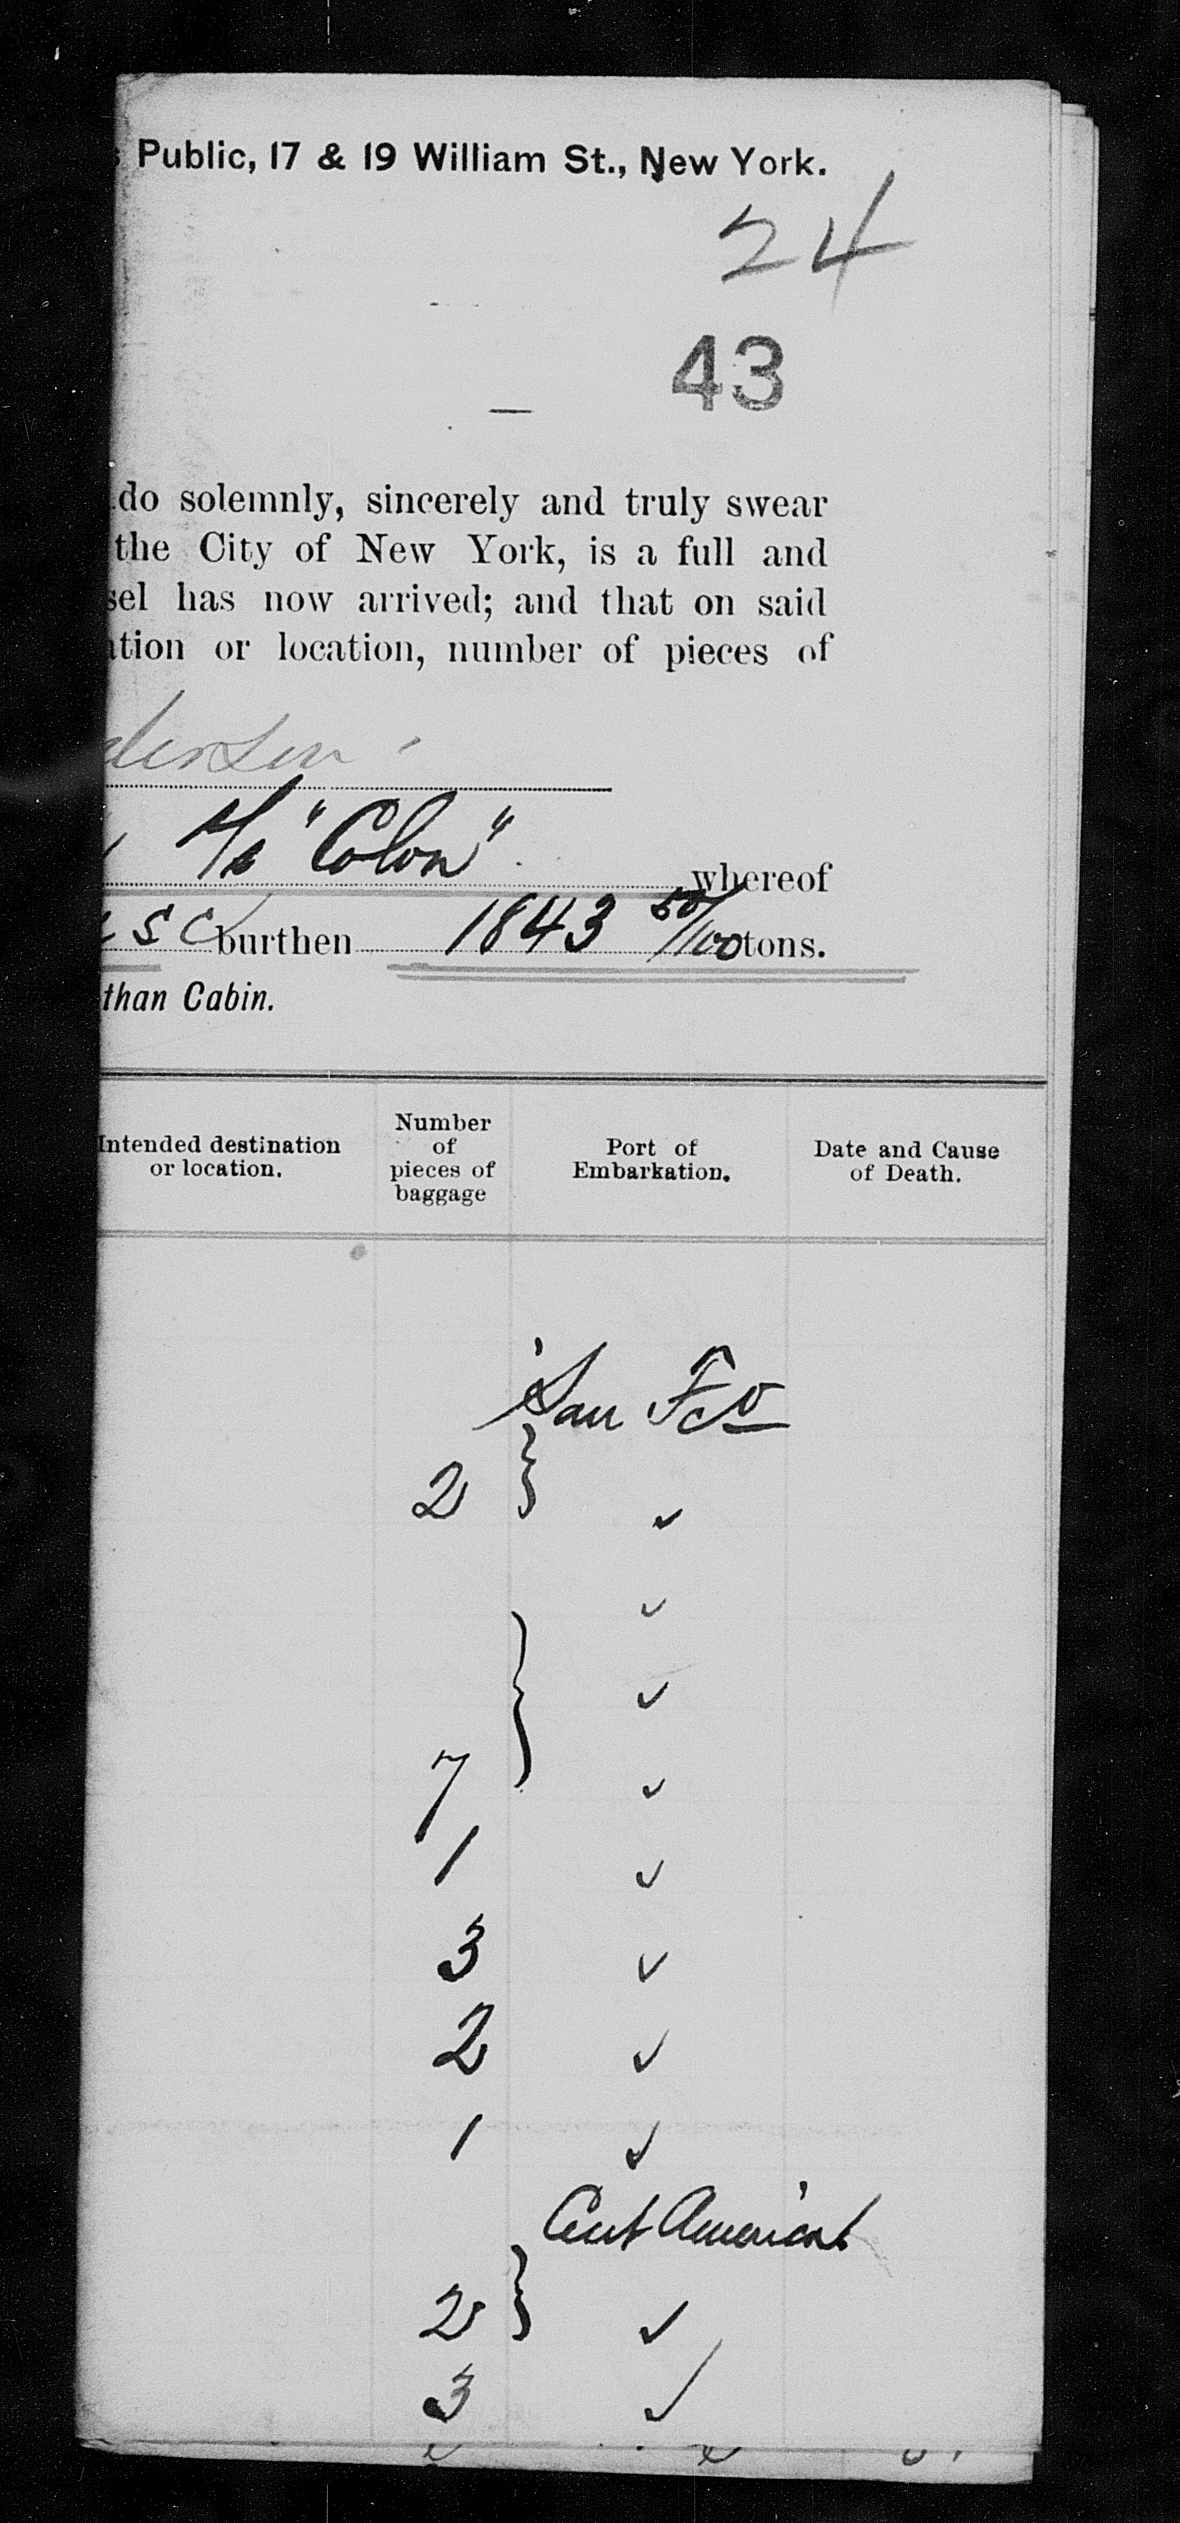 Public, 17 & 19 William St., New York.
24
43
do solemnly, sincerely and truly swear
the City of New York, is a full and
sel has now arrived; and that on said
ation or location, number of pieces of
derson
S/s "Colon" whereof
S C burthen 1843 50/100 tons.
than Cabin.
Intended destination
or location.
Number
of
pieces of
baggage
Port of
Embarkation.
Date and Cause
of Death.
San Fco
2 } ✓
✓
} ✓
7 ✓
1 ✓
3 ✓
2 ✓
1 ✓
Cent America
2 } ✓
3 ✓